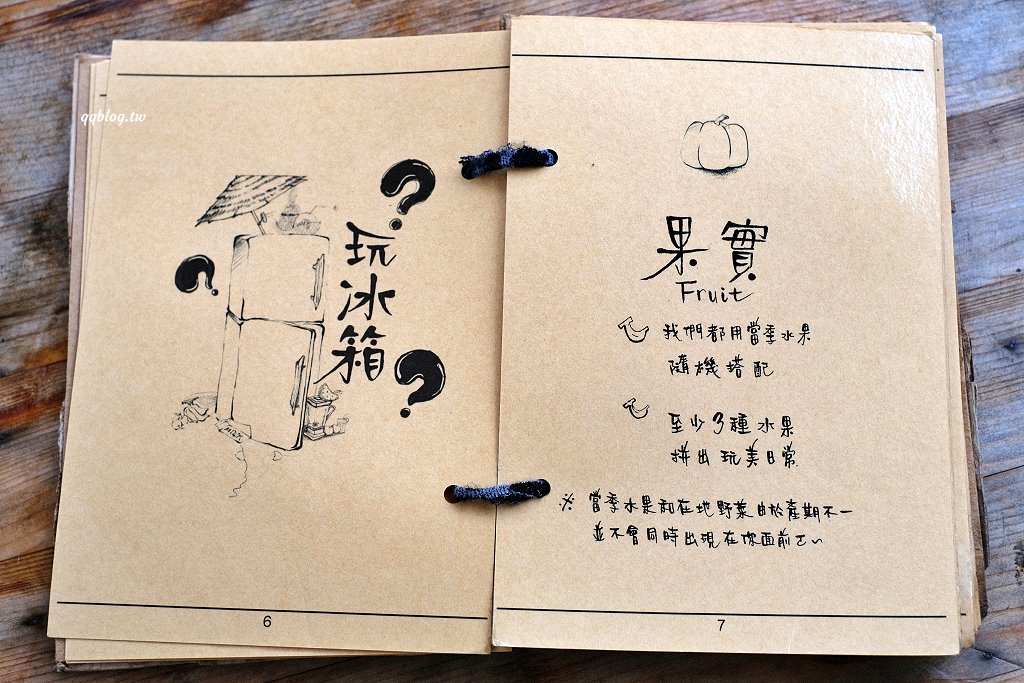 qqblog.tw
玩冰箱
6
果實
Fruit
我們都用當季水果
隨機搭配
至少3種水果
拼出玩美日常
※ 當季水果和在地野菜由於產期不一
並不會同時出現在你面前
7